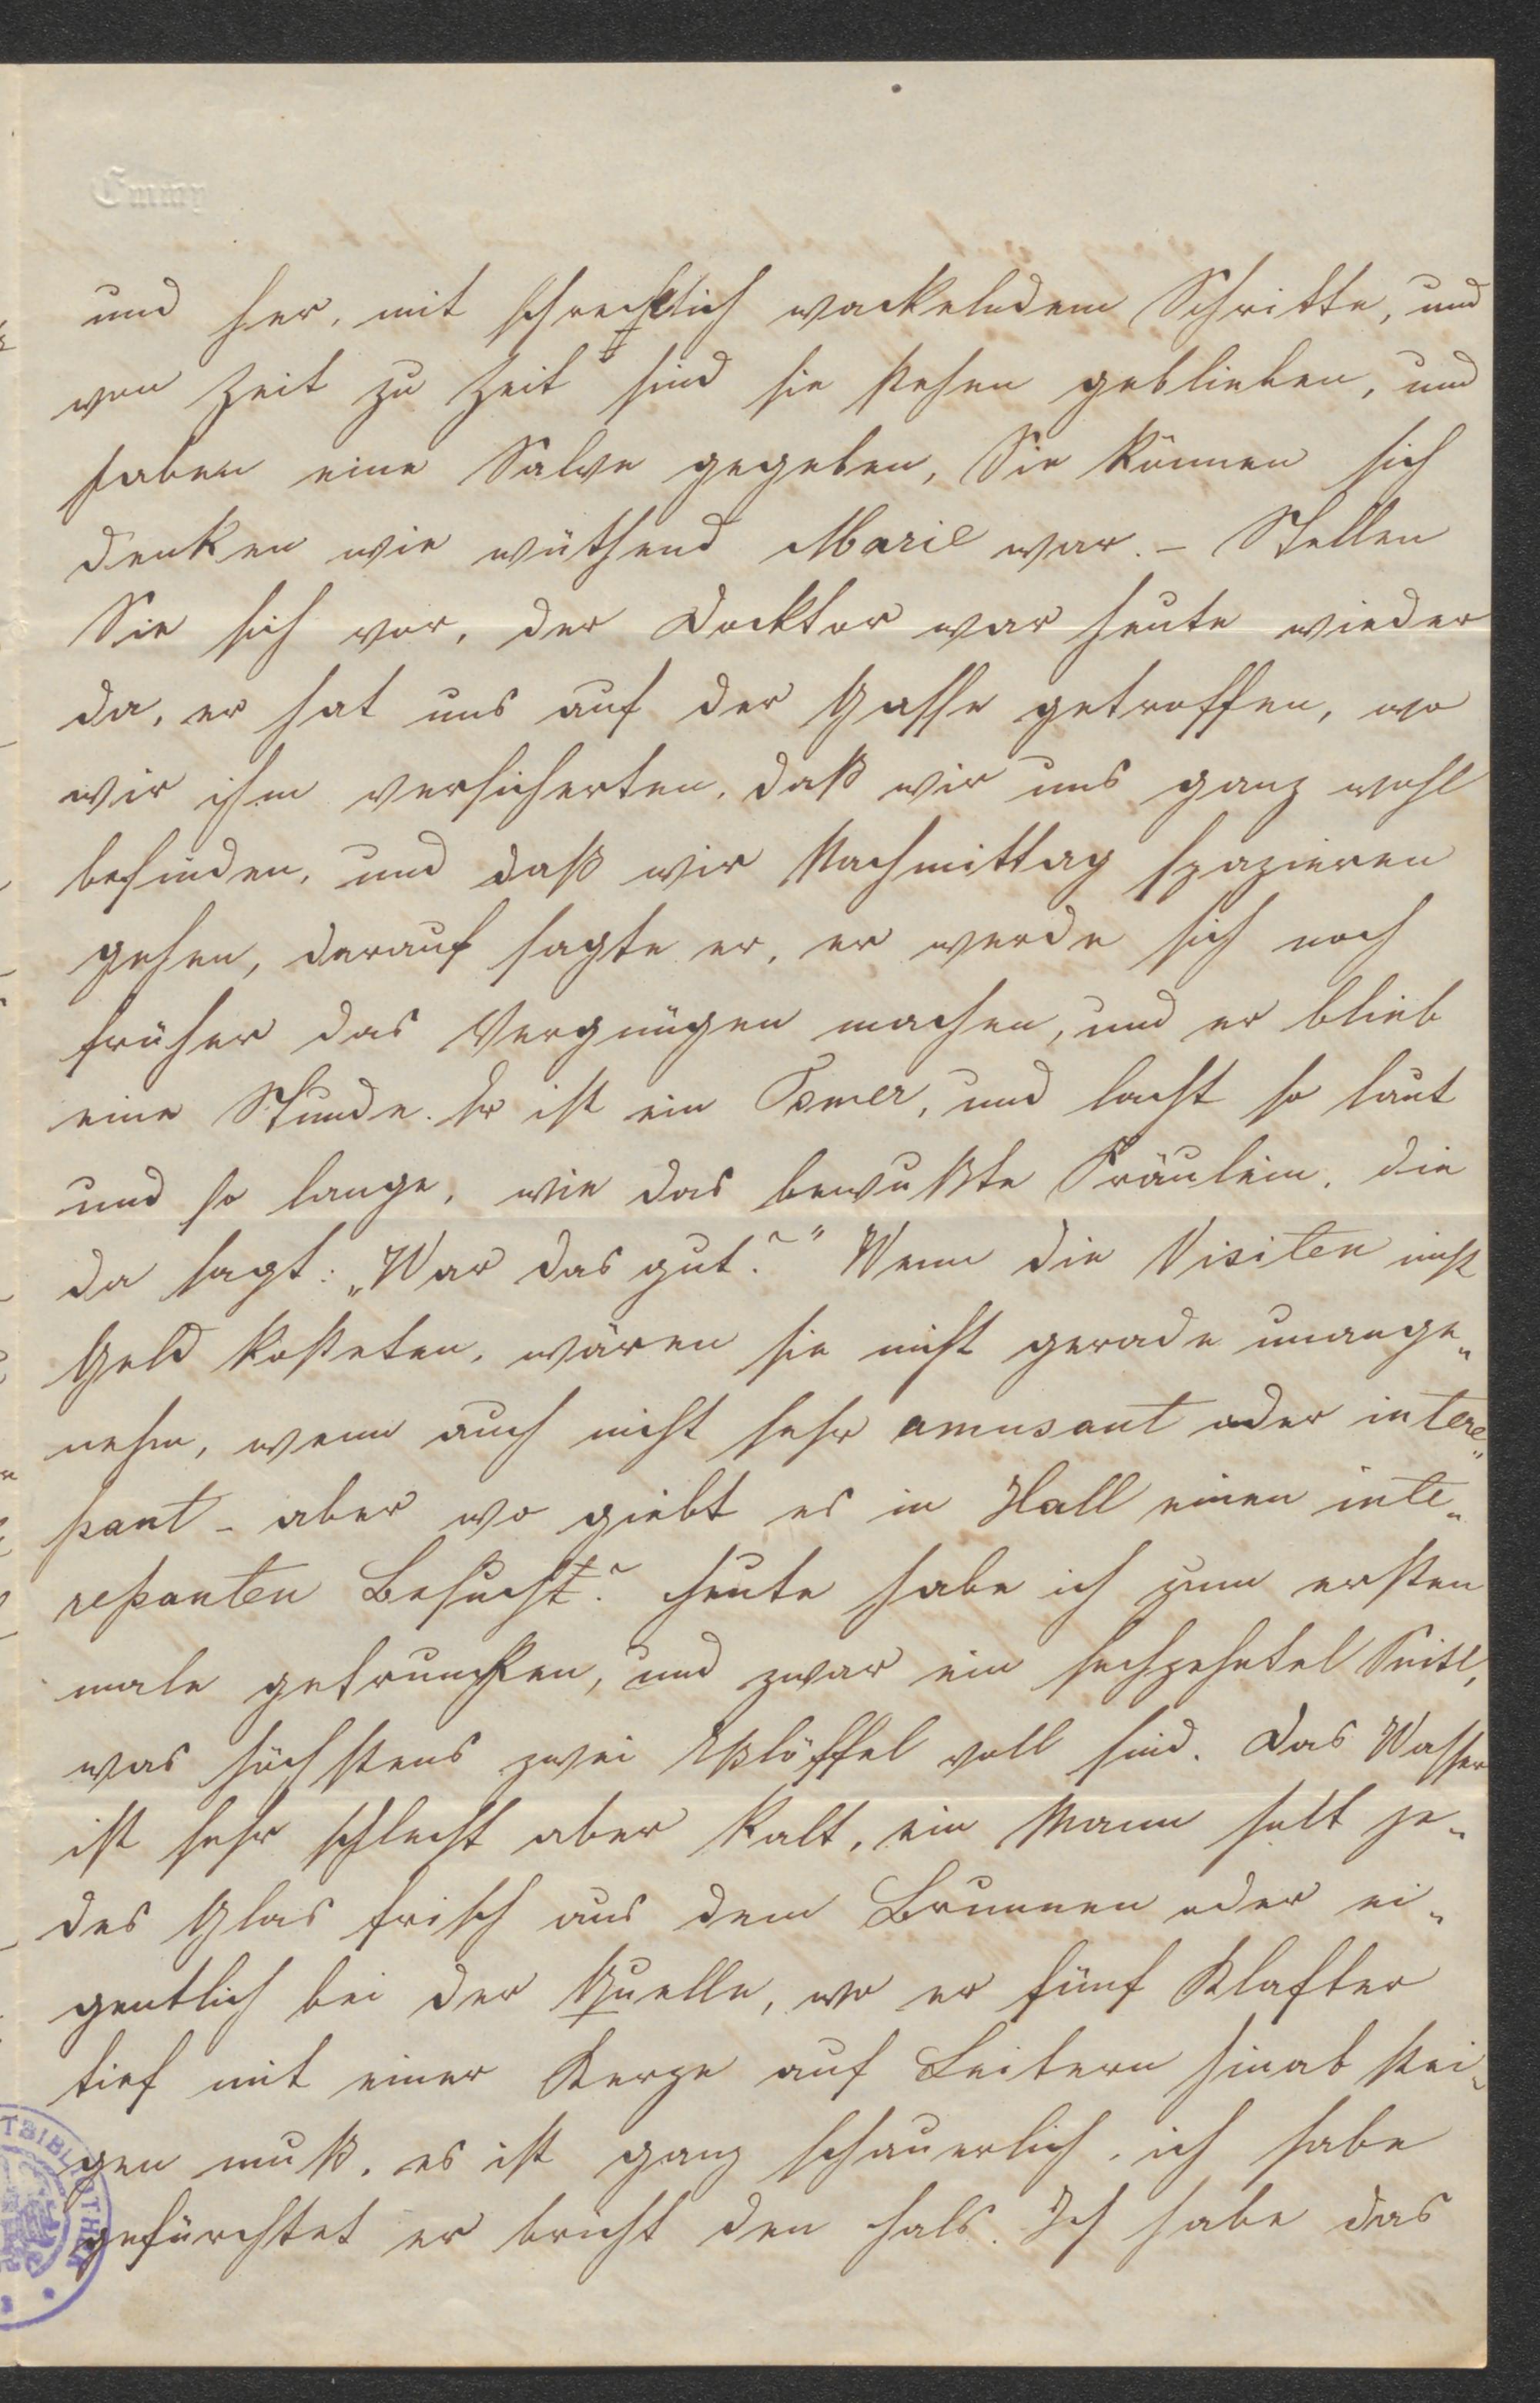 Emmy
und her, mit schrecklich wackelndem Schritte, und
von Zeit zu Zeit sind sie stehen geblieben, und
haben eine Salve gegeben, Sie können sich
denken wie wüthend Marie war. – Stellen
Sie sich vor, der Docktor war heute wieder
da, er hat uns auf der Gasse getroffen, wo
wir ihm versicherten, daß wir uns ganz wohl
befinden, und daß wir Nachmittag spazieren
gehen, darauf sagte er, er werde sich noch
früher das Vergnügen machen, und er blieb
eine Stunde. Er ist ein und lacht so laut
und so lange, wie das bewußte Fräulein, die
da sagt: „War das gut?" Wenn die Visiten nicht
Geld kosteten, wären sie nicht gerade unange-
nehm, wenn auch nicht sehr amusant oder intere-
ßant – aber wo giebt es in Hall einen inte-
reßanten Besuch? Heute habe ich zum ersten
male getruncken, und zwar ein sechzehntel Seitl,
was höchstens zwei Eßlöffel voll sind. Das Wasser
ist sehr schlecht aber kalt, ein Mann holt je-
des Glas frisch aus dem Brunnen oder ei-
gentlich bei der Quelle, wo er fünf Klafter
tief mit einer Kerze auf Leitern hinab stei-
gen muß, es ist ganz schauerlich, ich habe
gefürchtet er bricht den Hals. Ich habe das